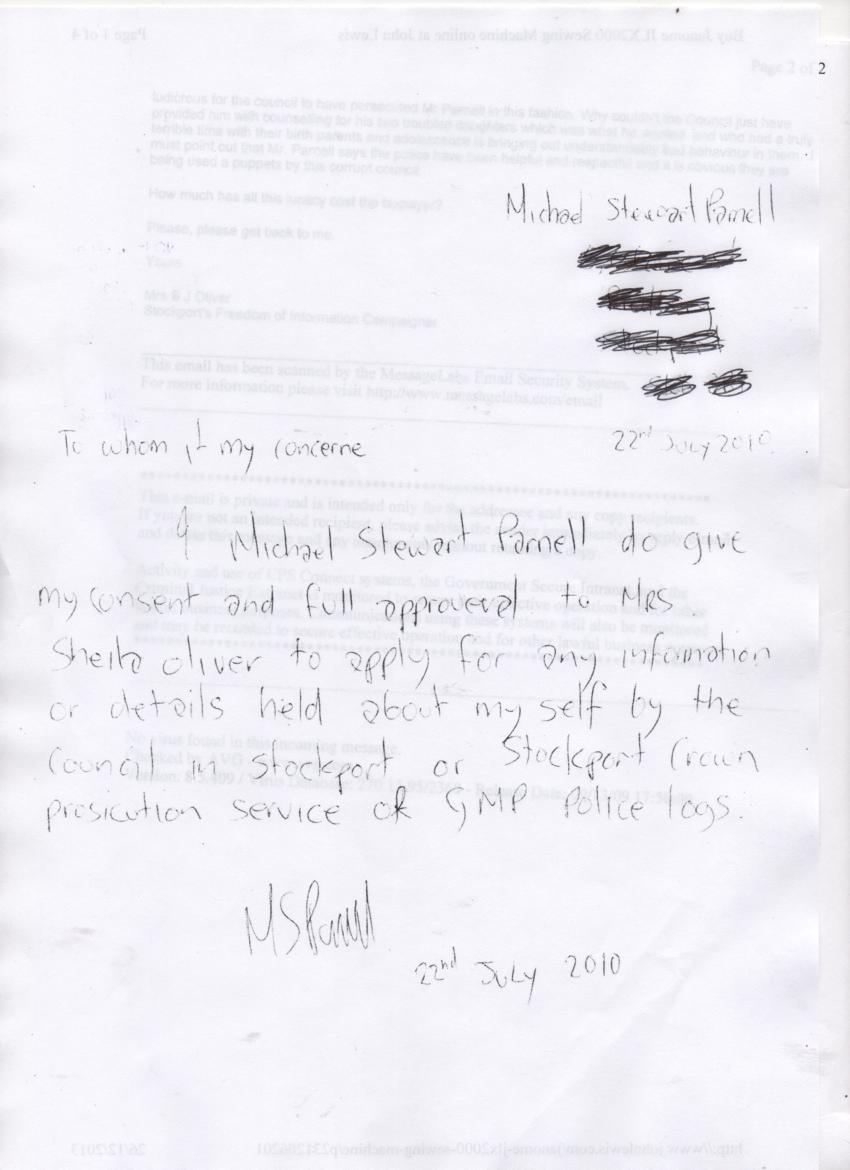 Buy Janome JLX2000 Sewing Machine online at John Lewis Page 1 of 4
Page 2 of 2
ludicrous for the council to have persecuted Mr Parnell in this fashion. Why couldn't the Council just have
provided him with counselling for his two troubled daughters which was what he wanted and who had a truly
terrible time with their birth parents and adolescence is bringing out understandably bad behaviour in them. I
must point out that Mr. Parnell says the police have been helpful and respectful and it is obvious they are
being used a puppets by this corrupt council
How much has all this lunacy cost the taxpayer?
Michael Stewart Parnell
Please, please get back to me.
Yours
Mrs S J Oliver
Stockport's Freedom of Information Campaigner
This email has been scanned by the MessageLabs Email Security System.
For more information please visit http://www.messagelabs.com/email
To whom it my concerne 22nd July 2010
This e-mail is private and is intended only for the addressee and any copy recipients.
If you are not an intended recipient, please advise the sender
I Michael Stewart Parnell do give
Activity and use of CPS Connect systems, the Government Secure Intranet
my consent and full approveral to Mrs.
Sheila oliver to apply for any infomation
or details held about my self by the
No virus found in this incoming message.
Council in Stockport or Stockport Crown
prosicution service or GMP Police logs.
MSParnell
22nd July 2010
http://www.johnlewis.com/janome-jlx2000-sewing-machine/p231206201 26/12/2013